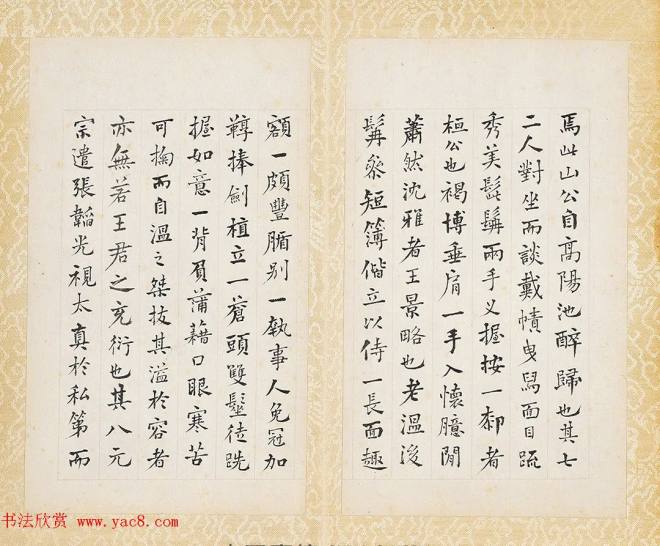 焉此山公自高陽池醉歸也其七
二人對坐而談戴幘曳舄面目疏
秀美髭髯兩手叉握按一郄者
桓公也褐博垂肩一手入懷臆閒
蕭然沈雅者王景略也老溫後
髯參短簿偕立以侍一長面趣
額一頗豐腯别一執事人免冠加
鞟捧劍植立一蒼頭雙髽徒跣
握如意一背負蒲藉口眼寒苦
可掬而自溫之桀技其溢於容者
亦無若王君之充衍也其八元
宗遣張韜光視太真於私第而
书法欣赏 www.yac8.com